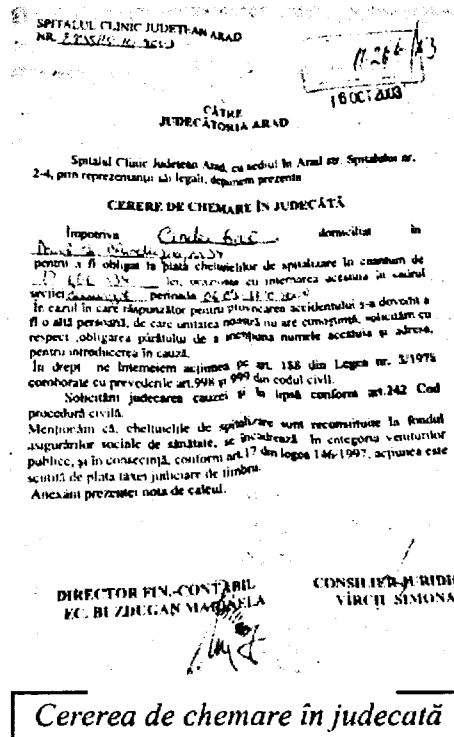 SPITALUL CLINIC JUDEȚEAN ARAD
NR.
16 OCT 2003
CĂTRE
JUDECĂTORIA ARAD
Spitalul Clinic Județean Arad, cu sediul în Arad str. Spitalului nr.
2-4, prin reprezentanții săi legali, depunem prezenta
CERERE DE CHEMARE ÎN JUDECATĂ
Împotriva domiciliat în
pentru a fi obligat la plata cheltuielilor de spitalizare în cuantum de
lei, ocazionate cu internarea acestuia în cadrul
secției perioada
În cazul în care răspunzător pentru provocarea accidentului s-a dovedit a
fi o altă persoană, de care unitatea noastră nu are cunoștință, solicităm cu
respect ,obligarea pârâtului de a menționa numele acestuia și adresa,
pentru introducerea în cauză.
În drept ne întemeiem acțiunea pe art. 188 din Legea nr. 3/1978
coroborate cu prevederile art.998 și 999 din codul civil.
Solicităm judecarea cauzei și în lipsă conform art.242 Cod
procedură civilă.
Menționăm că, cheltuielile de spitalizare sunt reconstituite la fondul
asigurărilor sociale de sănătate, se încadrează în categoria veniturilor
publice, și în consecință, conform art.17 din legea 146/1997, acțiunea este
scutită de plata taxei judiciare de timbru.
Anexăm prezentei nota de calcul.
DIRECTOR FIN.-CONTABIL
EC. BUZDUGAN MARINELA
CONSILIER JURIDIC
VÎRCIU SIMONA
Cererea de chemare în judecată